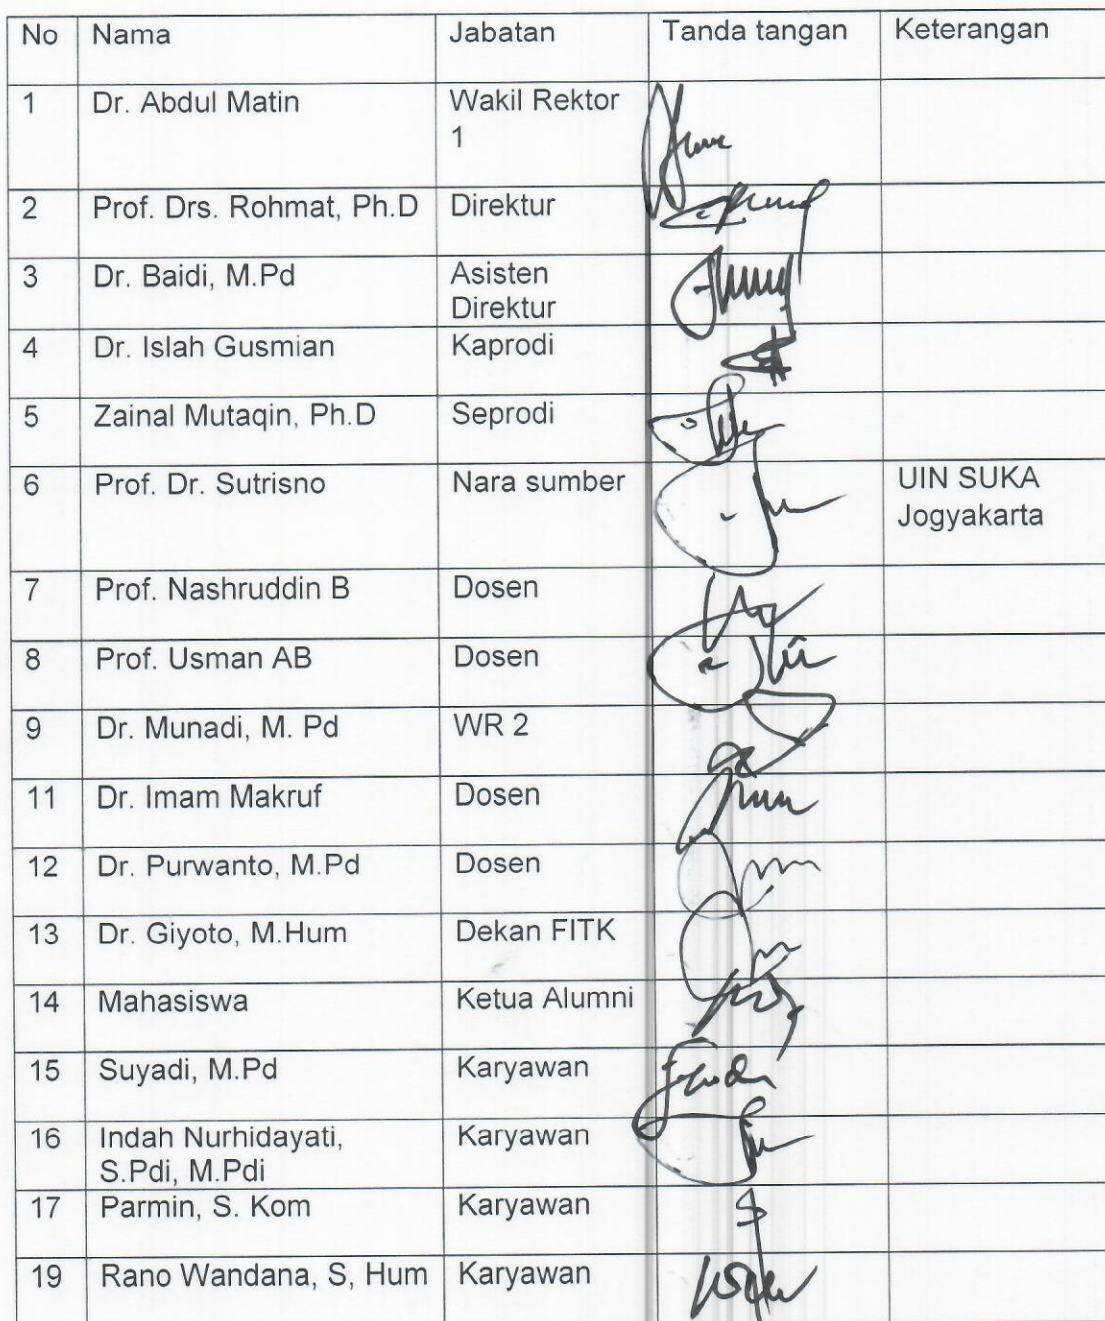 No Nama Jabatan Tanda tangan Keterangan
1 Dr. Abdul Matin Wakil Rektor
1
2 Prof. Drs. Rohmat, Ph.D Direktur
3 Dr. Baidi, M.Pd Asisten
Direktur
4 Dr. Islah Gusmian Kaprodi
5 Zainal Mutaqin, Ph.D Seprodi
6 Prof. Dr. Sutrisno Nara sumber UIN SUKA
Jogyakarta
7 Prof. Nashruddin B Dosen
8 Prof. Usman AB Dosen
9 Dr. Munadi, M. Pd WR 2
11 Dr. Imam Makruf Dosen
12 Dr. Purwanto, M.Pd Dosen
13 Dr. Giyoto, M.Hum Dekan FITK
14 Mahasiswa Ketua Alumni
15 Suyadi, M.Pd Karyawan
16 Indah Nurhidayati, Karyawan
S.Pdi, M.Pdi
17 Parmin, S. Kom Karyawan
19 Rano Wandana, S, Hum Karyawan